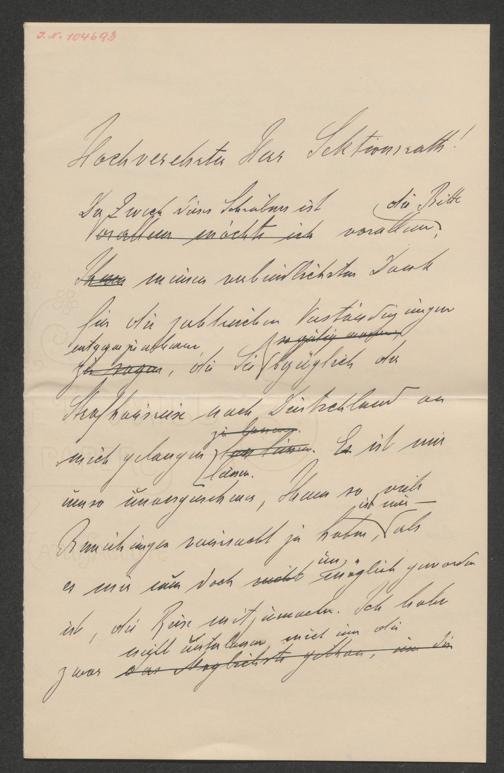 J.N. 104693
Hochverehrter Herr Sektionsrath!
Der Zweck dieses Schreibens ist die Bitte
vorallem möchte ich vorallem,
Ihnen meinen verbindlichsten Dank
für die zahlreichen Verständigungen
entgegenzunehmen so gütig waren,
zu sagen, die Sie bezüglich der
Studienreise nach Deutschland an
zu lassen
mich gelangen zu lassen. Es ist mir
liessen.
umso unangenehmer, Ihnen so viele
ist mir
Bemühungen verursacht zu haben, als
un
es mir nun doch nicht möglich geworden
ist, die Reise mitzumachen. Ich habe
nicht unterlassen mich um die
zwar das Möglichste gethan, um die